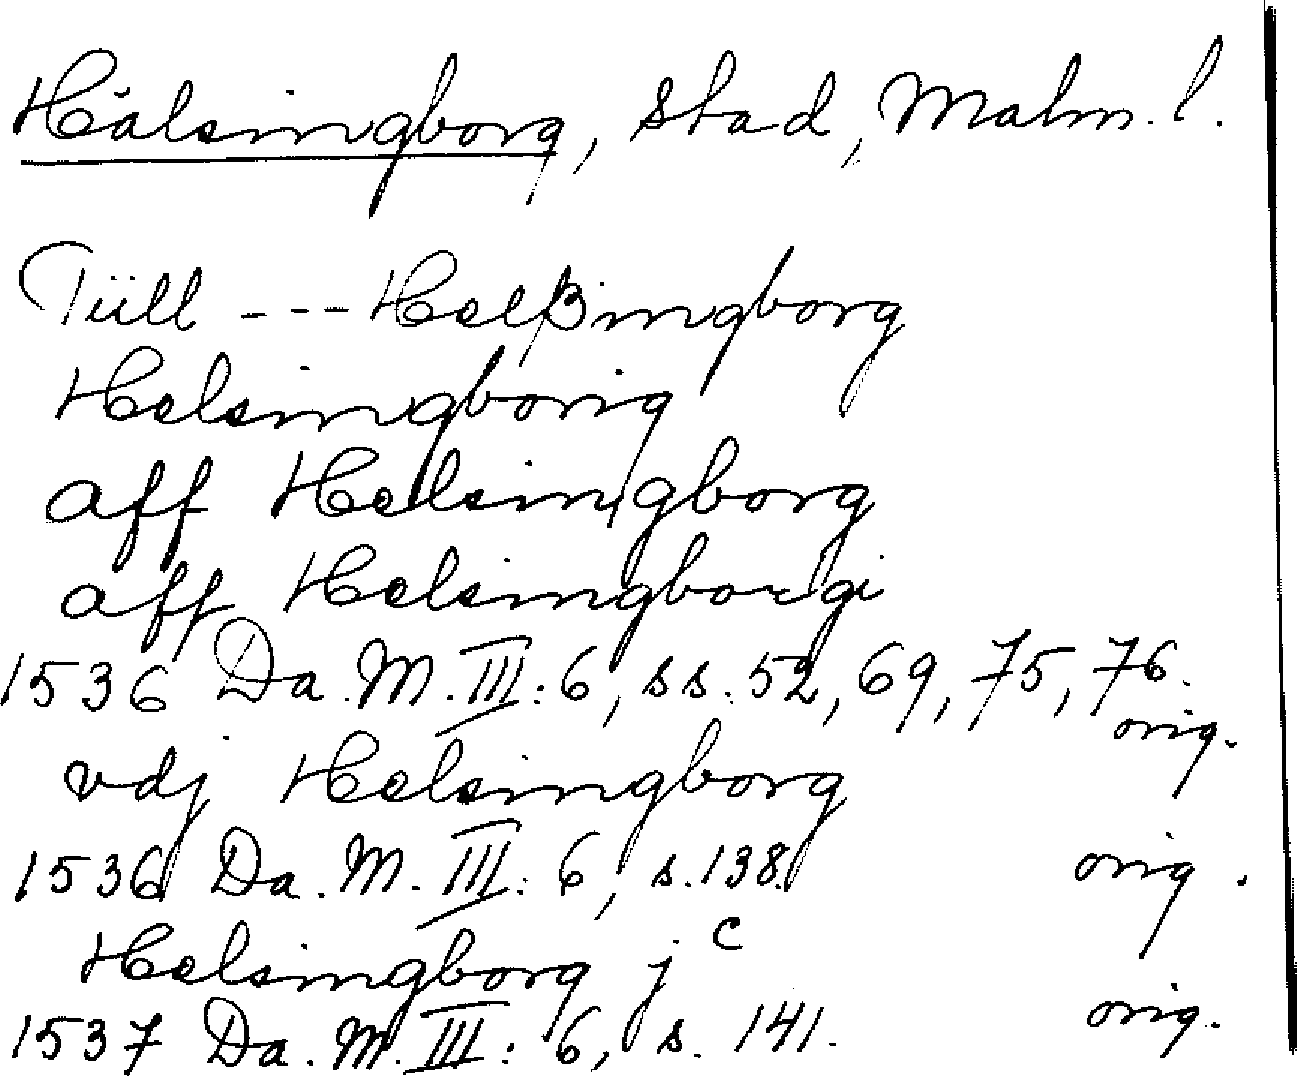 Hälsingborg, stad, Malm. l.
Tüll --- Helßingborg
Helsingborig
aff Helsingborg
aff Helsingborgi
1536 Da. M. III: 6, ss. 52, 69, 75, 76.
orig.
vdj Helsingborg
1536 Da. M. III: 6, s. 138. orig.
Helsingborg j c
1537 Da. M. III: 6, s. 141. orig.